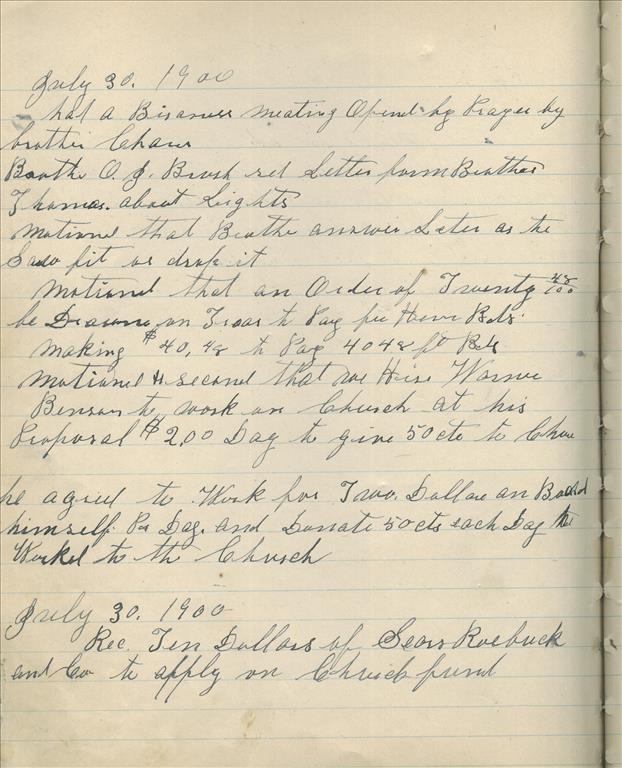 July 30. 1900
had a Bisaness meating Opend by Prayer by
brother Chase
Boothe O. J. Brush red Letter form Brother
Thomas. about Lights
Motiond that Brothe answer Later as he
Saw fit or drop it
Motiond that an Order of Twenty 48/100
be Drawn on Treas to Pay for
making $40,48 to Pay 4048 ft
Motioned & second that we Hire Warne
Benson to work on Church at his
Proposal $2,00 Day to give 50cts to Chur
he agred to Work for Two. Dollars an Board
himself. Per Day. and Donate 50cts each Day he
Worked to the Church
July 30. 1900
Rec. Ten Dollars of Sears Roebuck
and Co to apply on Church fund